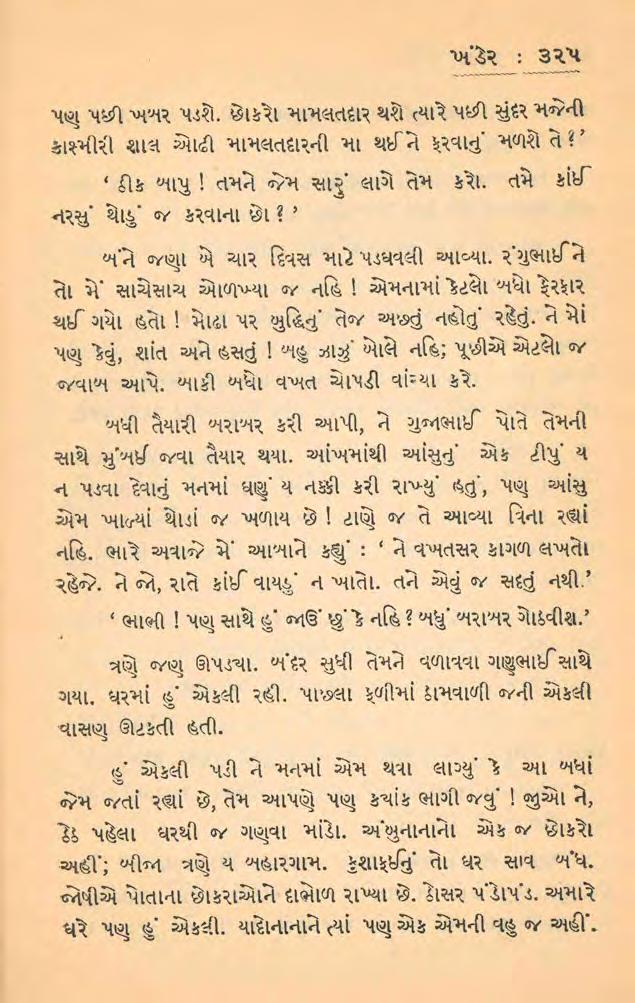 ખંડેર : ૩૨૫
પણ પછી ખબર પડશે. છોકરો મામલતદાર થશે ત્યારે પછી સુંદર મજેની
કાશ્મીરી શાલ ઓઢી મામલતદારની મા થઈને ફરવાનું મળશે તે ?’
‘ ઠીક બાપુ ! તમને જેમ સારું લાગે તેમ કરો. તમે કાંઈ
નરસું થોડું જ કરવાના છો ? ’
બંને જણા બે ચાર દિવસ માટે પડઘવલી આવ્યા. રંગુભાઈને
તો મેં સાચેસાચ ઓળખ્યા જ નહિ ! એમનામાં કેટલો બધો ફેરફાર
થઈ ગયો હતો ! મોઢા પર બુદ્ધિનું તેજ અછતું નહોતું રહેતું. ને મોં
પણ કેવું, શાંત અને હસતું ! બહુ ઝાઝું બોલે નહિ; પૂછીએ એટલો જ
જવાબ આપે. બાકી બધો વખત ચોપડી વાંચ્યા કરે.
બધી તૈયારી બરાબર કરી આપી, ને ગુજાભાઈ પોતે તેમની
સાથે મુંબઈ જવા તૈયાર થયા. આંખમાંથી આંસુનું એક ટીપું ય
ન પડવા દેવાનું મનમાં ઘણું ય નક્કી કરી રાખ્યું હતું, પણ આંસુ
એમ ખાળ્યાં થોડાં જ ખળાય છે ! ટાણે જ તે આવ્યા વિના રહ્યાં
નહિ. ભારે અવાજે મેં આબાને કહ્યું : ‘ ને વખતસર કાગળ લખતો
રહેજે. ને જો, રાતે કાંઈ વાયડું ન ખાતો. તને એવું જ સદતું નથી.’
‘ ભાભી ! પણ સાથે હું જાઉં છું કે નહિ ? બધું બરાબર ગોઠવીશ.’
ત્રણે જણ ઊપડ્યા. બંદર સુધી તેમને વળાવવા ગણુભાઈ સાથે
ગયા. ઘરમાં હું એકલી રહી. પાછલા ફળીમાં ઠામવાળી જની એકલી
વાસણ ઊટકતી હતી.
હું એકલી પડી ને મનમાં એમ થવા લાગ્યું કે આ બધાં
જેમ જતાં રહ્યાં છે, તેમ આપણે પણ ક્યાંક ભાગી જવું ! જુઓ ને,
ઠેઠ પહેલા ઘરથી જ ગણવા માંડો. અંબુનાનાનો એક જ છોકરો
અહીં; બીજા ત્રણે ય બહારગામ. કુશાફઈનું તો ઘર સાવ બંધ.
જોષીએ પોતાના છોકરાઓને દાભોળ રાખ્યા છે. ઠોસર પંડોપંડ. અમારે
ઘરે પણ હું એકલી. યાદોનાનાને ત્યાં પણ એક એમની વહુ જ અહીં.